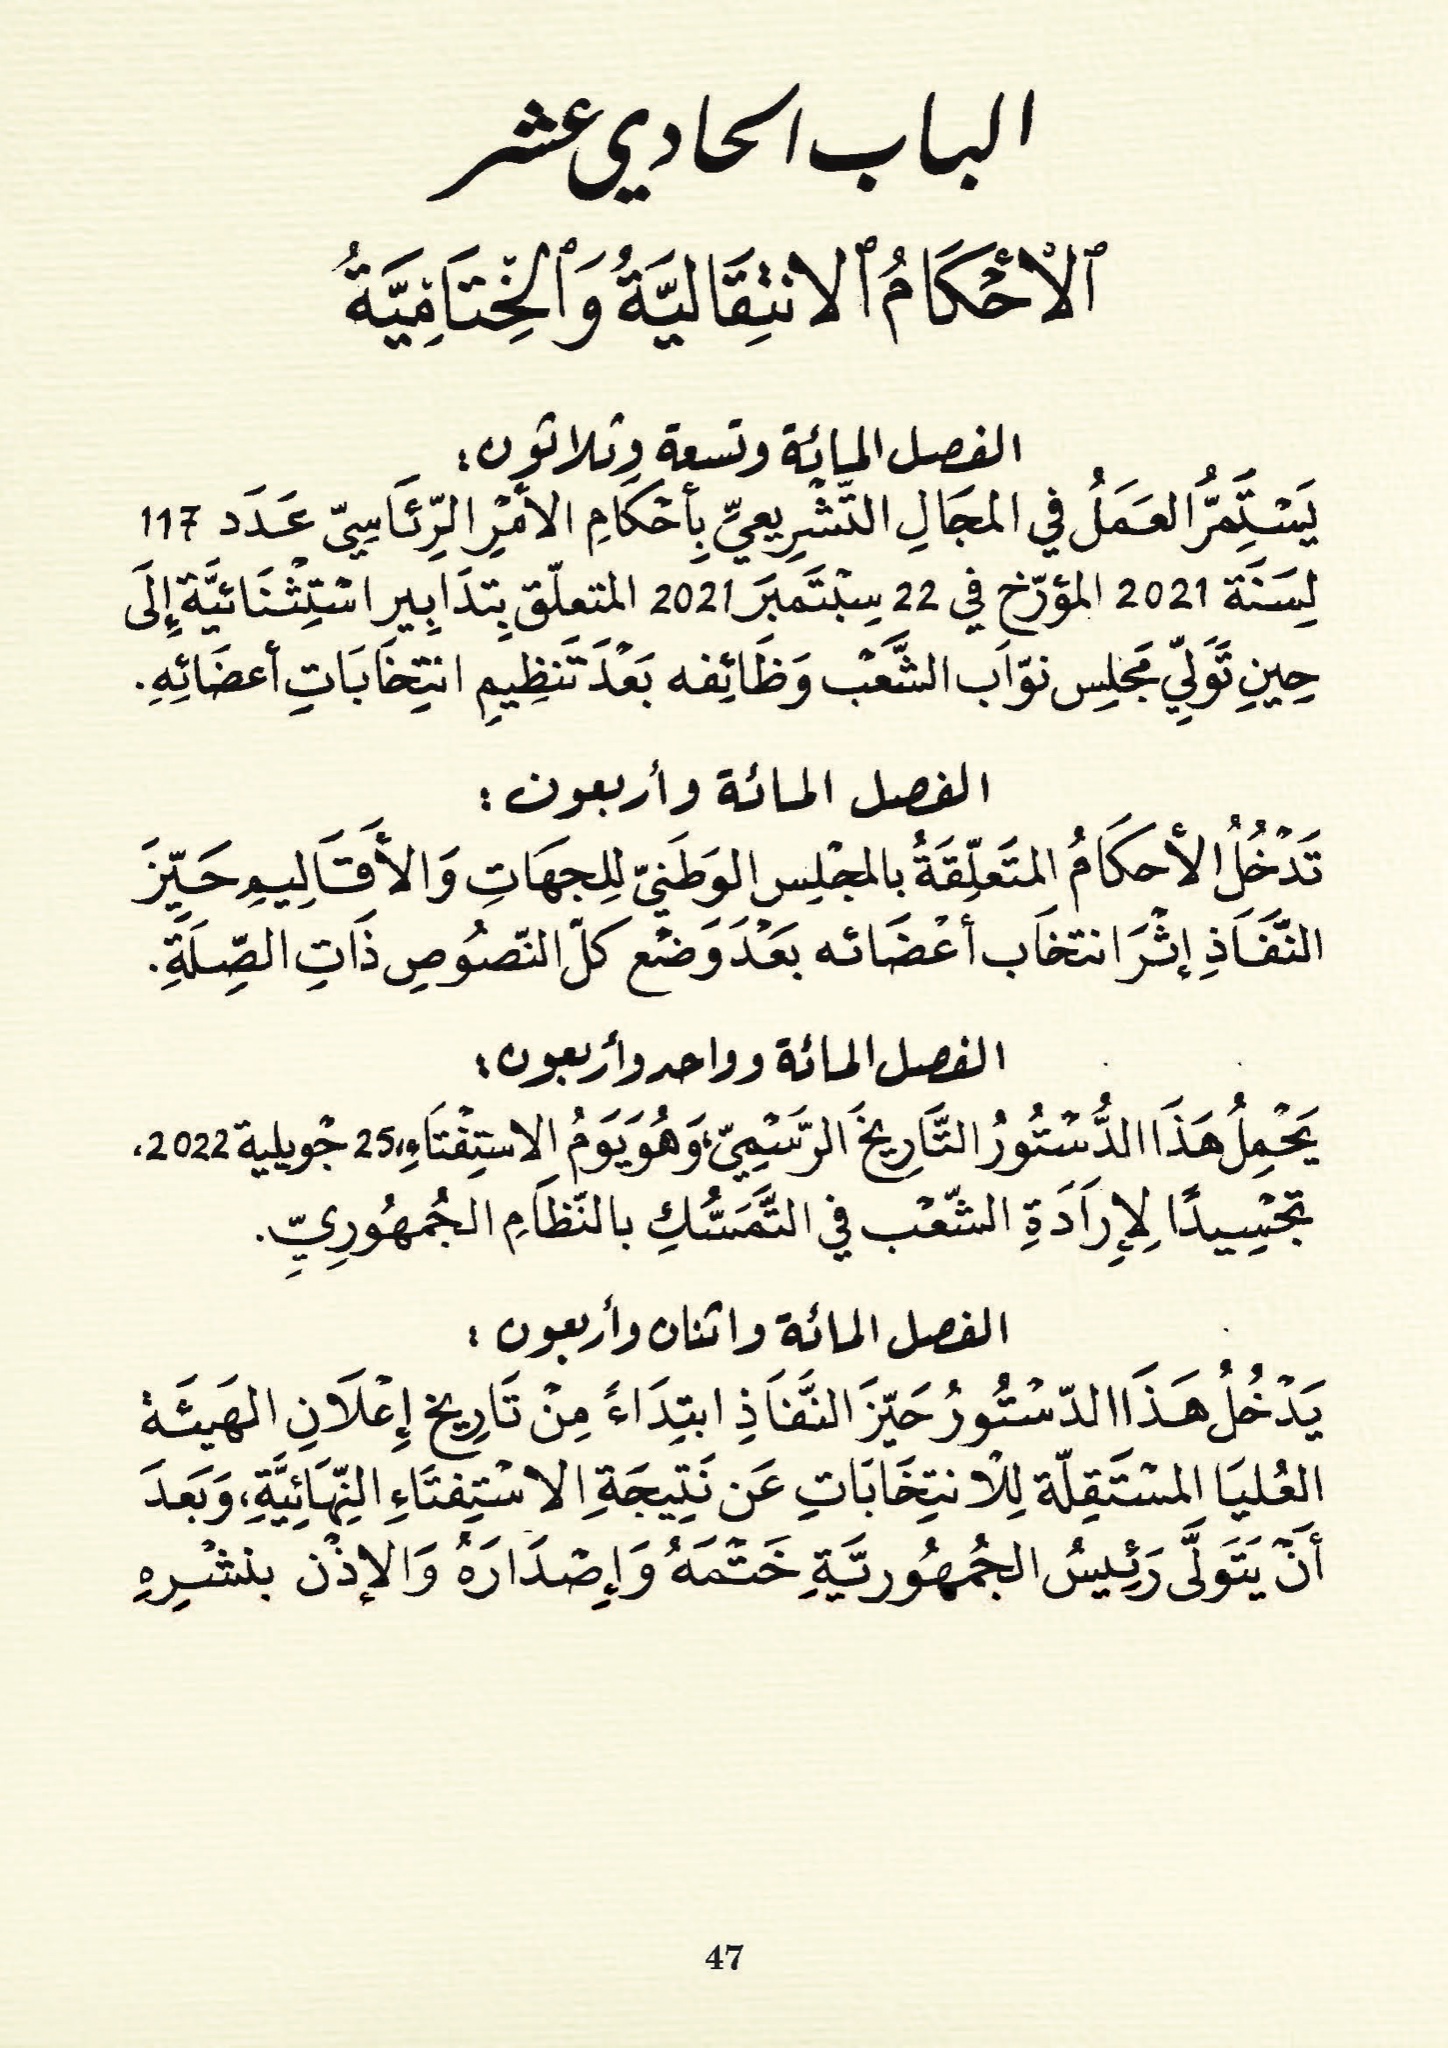 الباب الحادي عشر
ٱلْأَحْكَامُ ٱلانتِقَاليَّةُ وَٱلْخِتَامِيَّةُ
الفصل المائة وتسعة وثلاثون:
يَسْتَمِرُّ العَمَلُ في المجَالِ التَّشْرِيعيِّ بِأحْكَامِ الأمْرِ الرِّئَاسِيّ عَدَد 117
لِسَنَة 2021 المؤرّخ في 22 سِبْتَمبَرَ 2021 المتعلّق بِتدَابِير اسْتِثْنَائيَّة إِلَى
حِينِ تَوَلِّي مَجْلِس نوّاب الشَّعْب وَظَائِفه بَعْدَ تَنظِيمِ انتِخَابَاتِ أعضَائِهِ.
الفصل المائة وأربعون:
تَدْخُلُ الأحكَامُ المتَعلِّقَةُ بالمجْلِس الوَطَنيّ لِلجهَاتِ وَالأَقَالِيمِ حَيّزَ
النَّفَاذِ إثْرَ انتخَاب أعْضَائه بَعْدَ وَضْع كلّ النّصُوصِ ذَاتِ الصِّلَةِ.
الفصل المائة وواحد وأربعون:
يَحْمِلُ هَذَا الدُّسْتُورُ التَّارِيخَ الرّسْمِيّ، وَهُوَ يَوَمُ الاستِفْتَاءِ، 25 جْويلية 2022،
تجْسِيدًا لِإِرَادَةِ الشّعْب في التَّمَسُّكِ بالنّظَامِ الجُمهُورِيِّ.
الفصل المائة واثنان وأربعون:
يَدْخُلُ هَذَا الدّسْتُورُ حَيّزَ النَّفَاذِ ابتِدَاءً مِنْ تَارِيخ إِعْلَانِ الهَيئَة
العُليَا المسْتَقِلّة لِلْانتِخَابَاتِ عَن نَتِيجَةِ الاسْتِفتَاءِ النِّهَائِيَّةِ، وَبَعدَ
أنْ يَتَوَلَّى رَئِيسُ الجُمهُوريَّةِ خَتْمَهُ وَإصْدَارَهُ وَالإذْن بنشْرِهِ
47